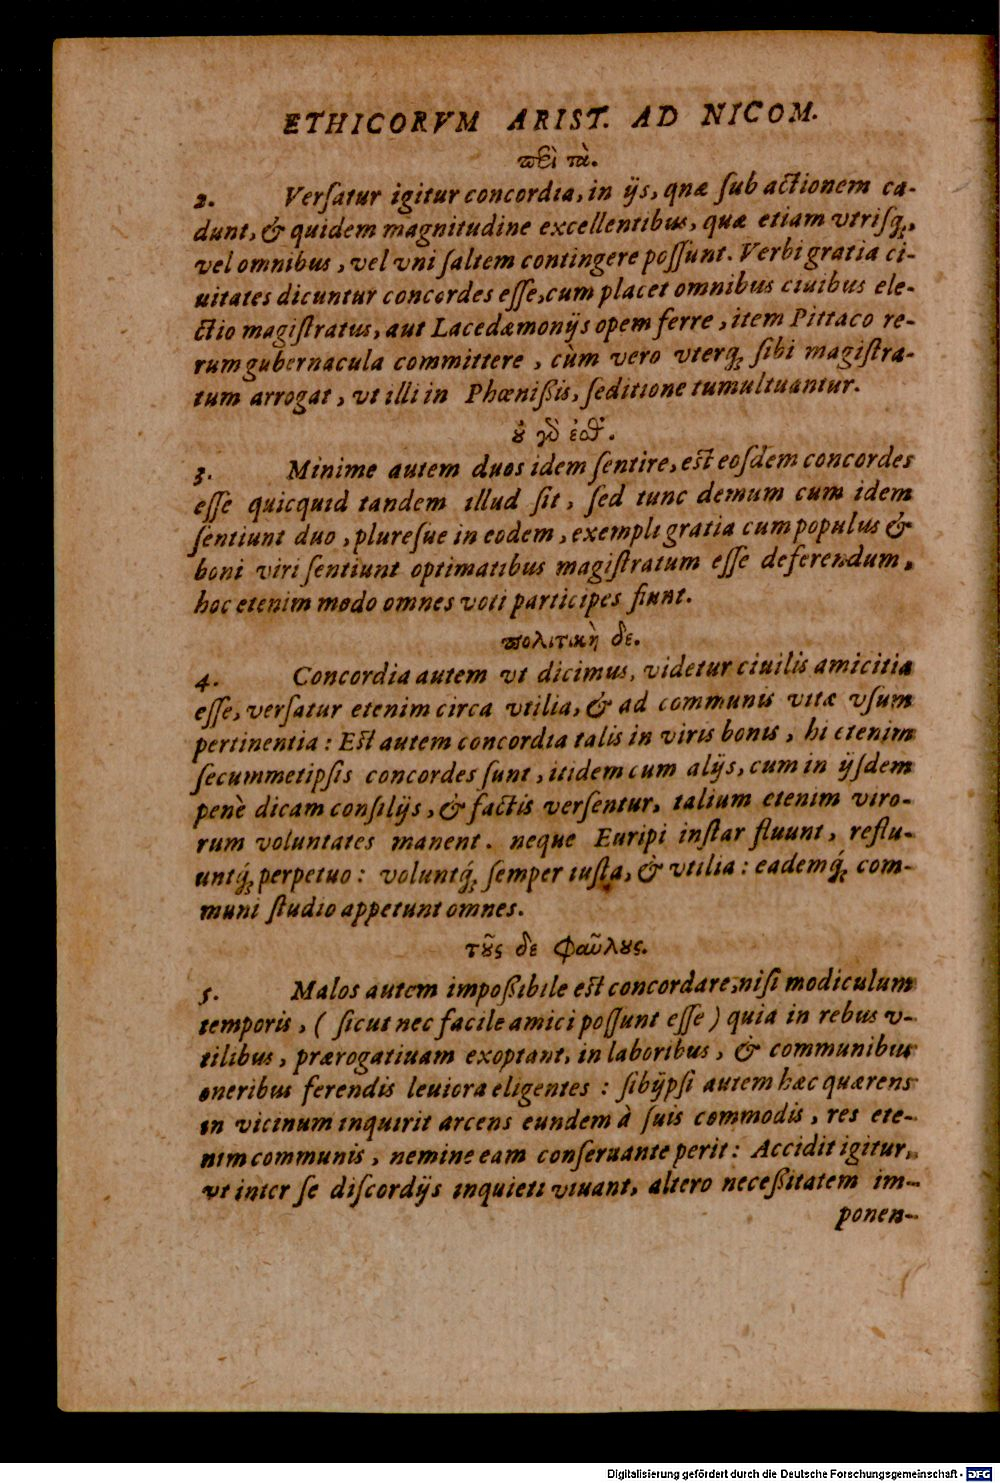 ETHICORVM ARIST. AD NICOM.
περὶ τὰ.
2. Verſatur igitur concordia, in ijs, qnæ ſub actionem ca-
dunt, & quidem magnitudine excellentibus, quæ etiam vtriſq́;,
vel omnibus, vel vni ſaltem contingere poſſunt. Verbi gratia ci-
uitates dicuntur concordes eſſe, cum placet omnibus ciuibus ele-
ctio magiſtratus, aut Lacedæmonijs opem ferre, item Pittaco re-
rum gubernacula committere, cùm vero vterq; ſibi magiſtra-
tum arrogat, vt illi in Phœnißis, ſeditione tumultuantur.
οὐ γὰρ ἐσθ'.
3. Minime autem duos idem ſentire, est eoſdem concordes
eſſe quicquid tandem illud ſit, ſed tunc demum cum idem
ſentiunt duo, plureſue in eodem, exempli gratia cum populus &
boni viri ſentiunt optimatibus magiſtratum eſſe deferendum,
hoc etenim modo omnes voti participes fiunt.
πολιτικὴ δε.
4. Concordia autem vt dicimus, videtur ciuilis amicitia
eſſe, verſatur etenim circa vtilia, & ad communis vitæ vſum
pertinentia: Est autem concordia talis in viris bonis, hi etenim
ſecummetipſis concordes ſunt, itidem cum alijs, cum in ijſdem
penè dicam conſilijs, & factis verſentur, talium etenim viro-
rum voluntates manent. neque Euripi inſtar fluunt, reflu-
untq́; perpetuo: voluntq́; ſemper iuſta, & vtilia: eademq́; com-
muni ſtudio appetunt omnes.
τοῦς δε φαῦλους.
5. Malos autem impoßibile est concordare, niſi modiculum
temporis, (ſicut nec facile amici poſſunt eſſe) quia in rebus v-
tilibus, prærogatiuam exoptant, in laboribus, & communibus
oneribus ferendis leuiora eligentes: ſibijpſi autem hæc quærens
in vicinum inquirit arcens eundem à ſuis commodis, res ete-
nim communis, nemine eam conſeruante perit: Accidit igitur,
vt inter ſe diſcordijs inquieti viuant, altero neceßitatem im-
ponen-
Digitalisierung gefördert durch die Deutsche Forschungsgemeinschaft - DFG